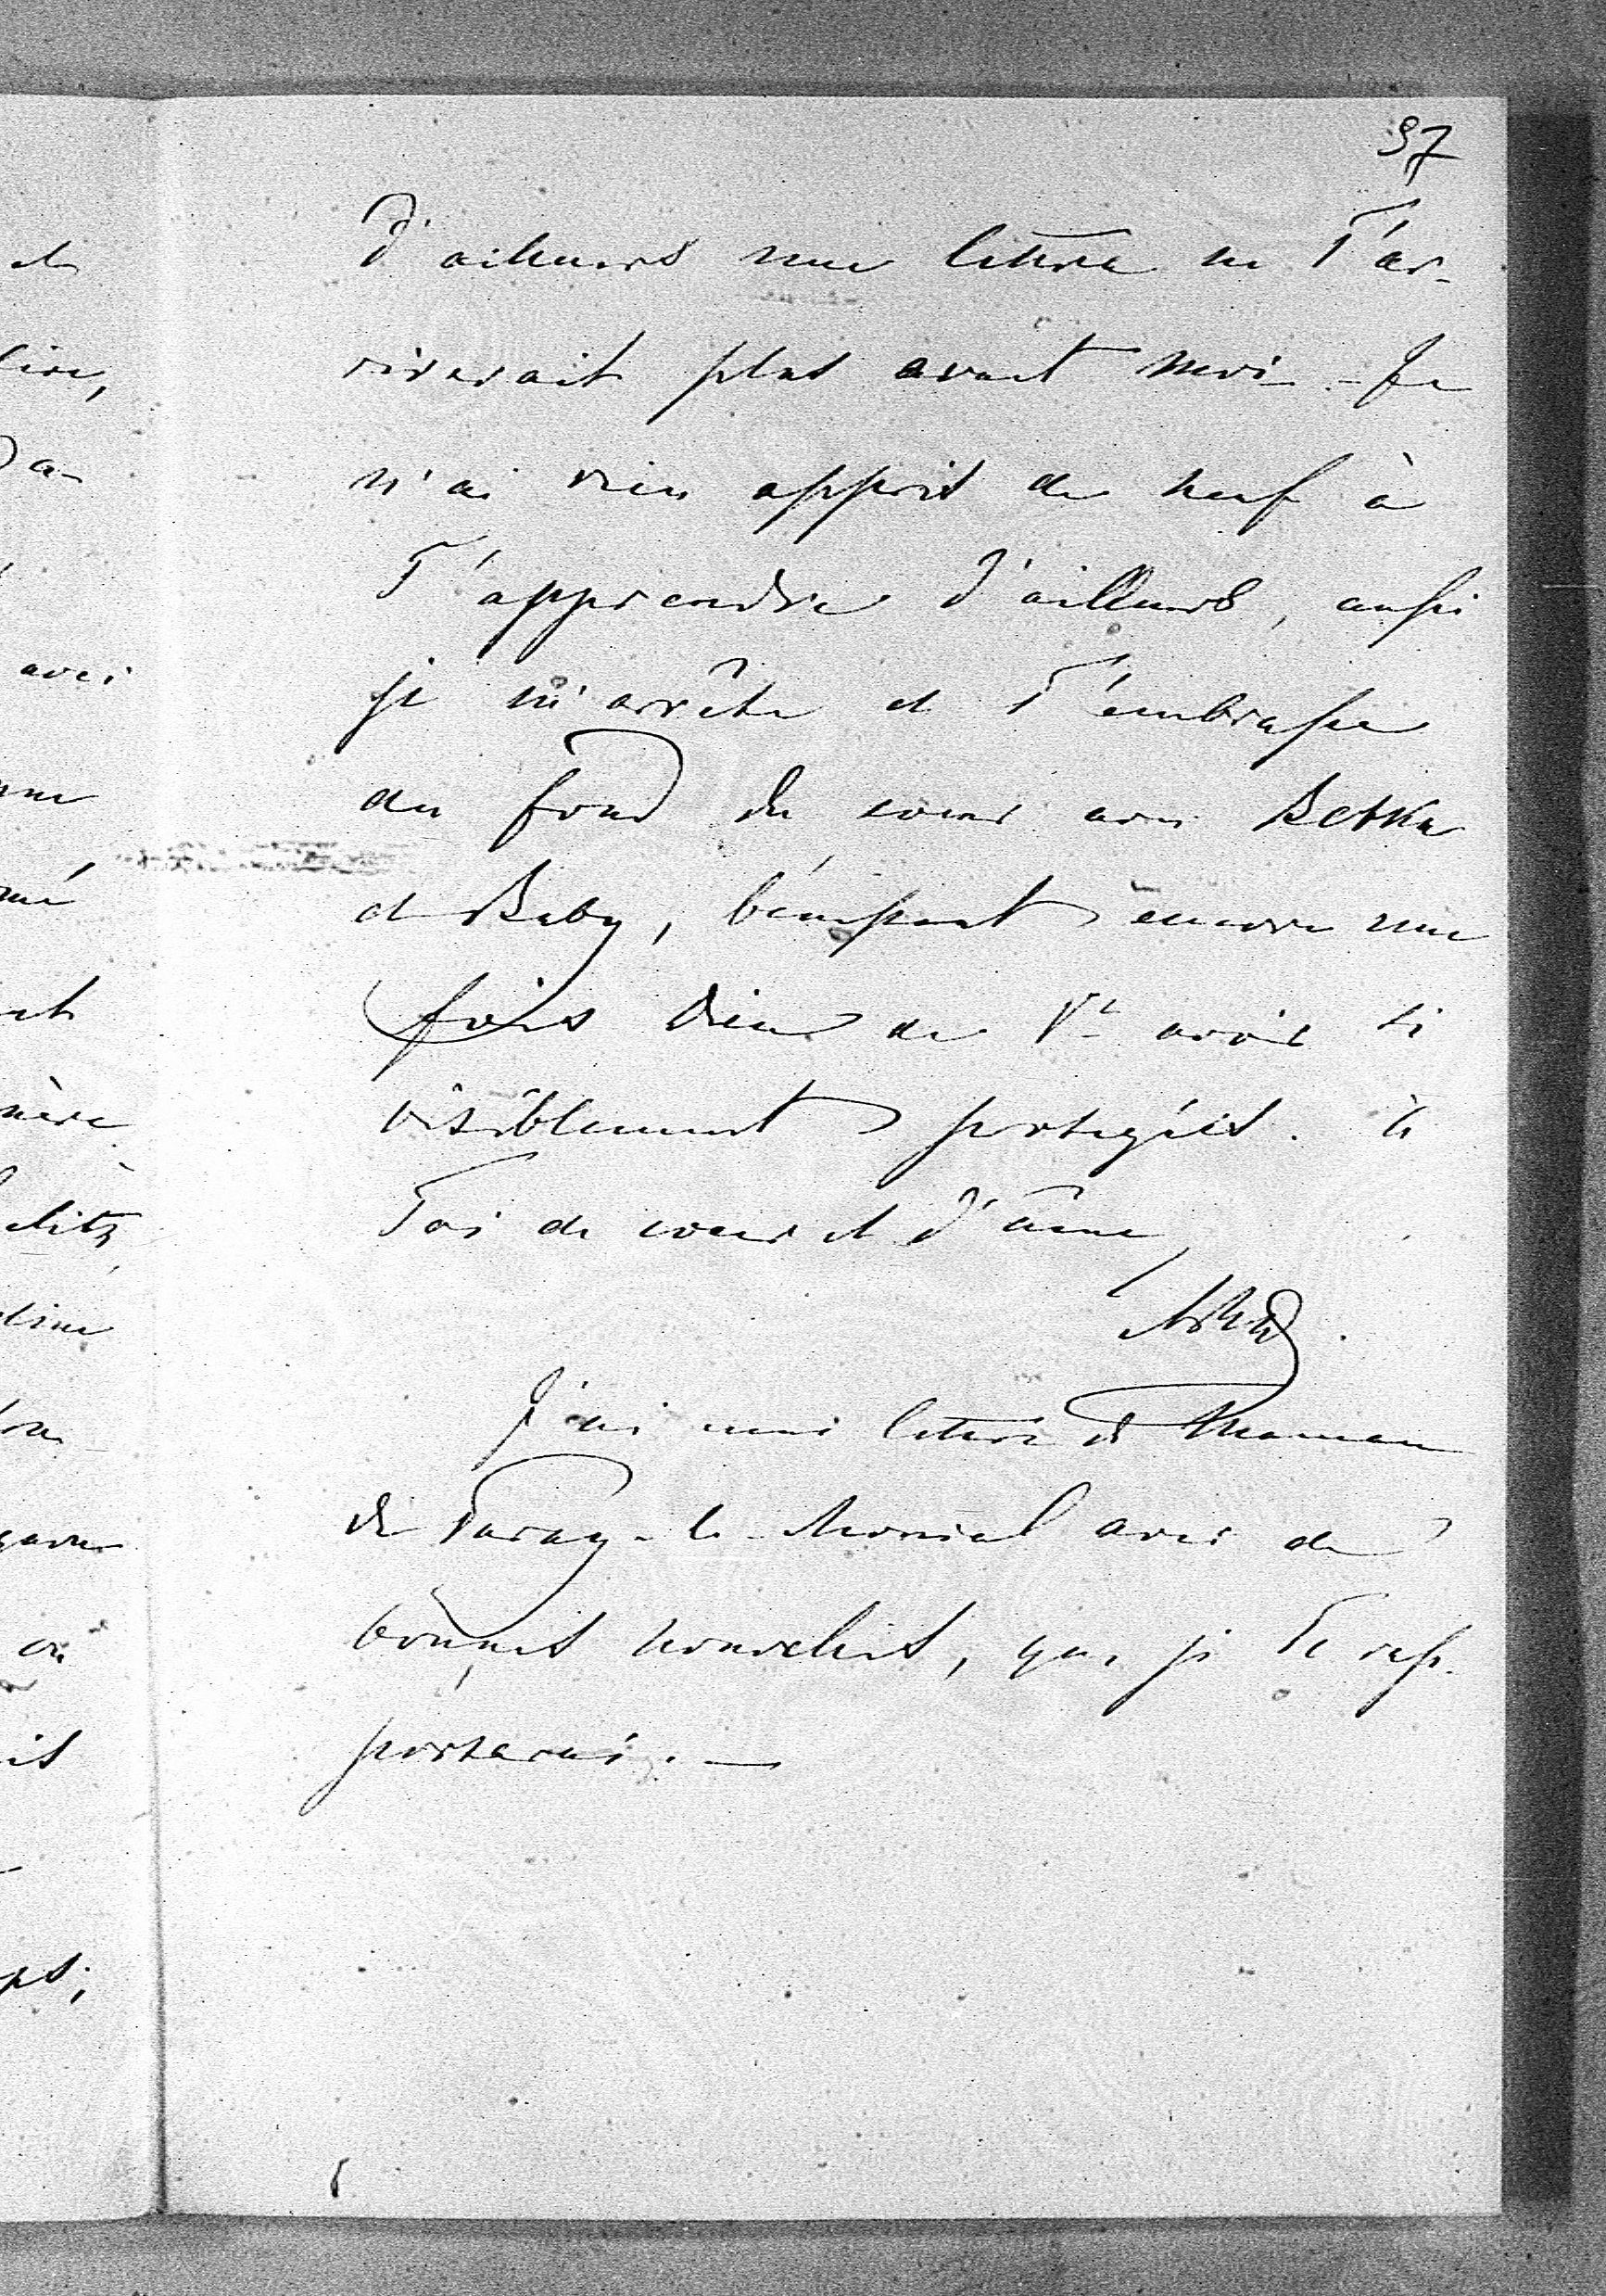 97
D'ailleurs une lettre ne T'ar-
riverait plus avant moi. - Je
n'ai rien appris de neuf à
T'apprendre d'ailleurs, aussi
je m'arrête et T'embrasse
du fond du coeur avec Betka
et Baby, bénissant encore une
fois Dieu de Vs avoir si
visiblement protégées. à
Toi de coeur et d'âme,
J'ai une lettre de Maman
de Paray-le-Monial avec de
bonnes nouvelles, que je Te rap-
porterai. —